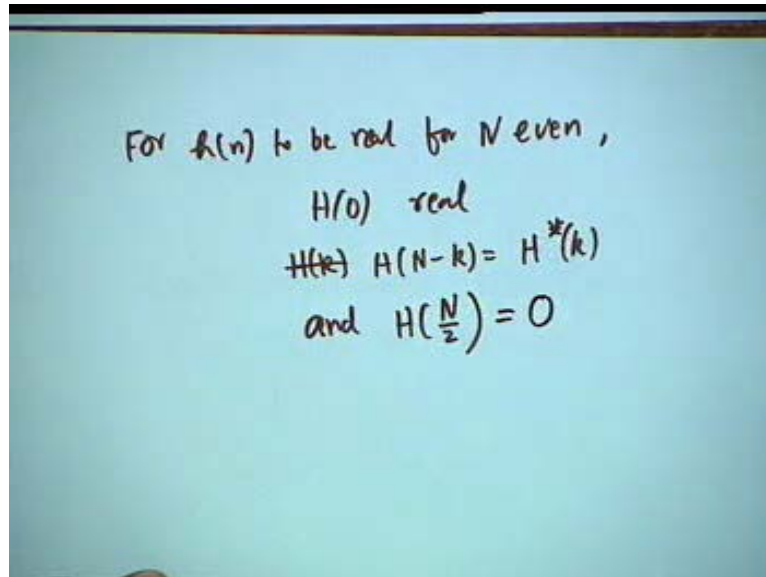 For h(n) to be real for N even,
H(0) real
H(k) H(N-k) = H*(k)
and H(N/2) = 0